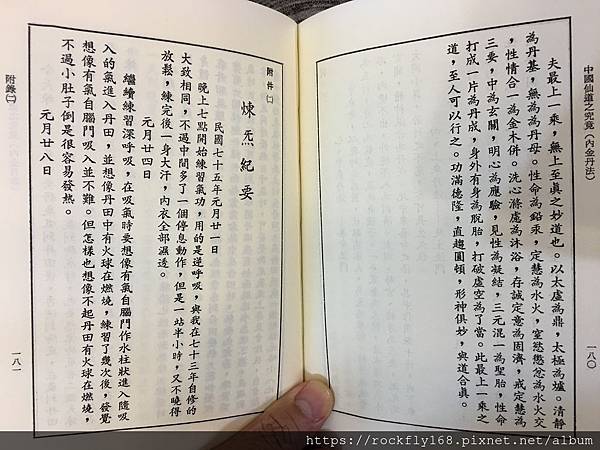 中國仙道之究竟（內金丹法）
一八〇
夫最上一乘，無上至眞之妙道也。以太虛為鼎，太極為爐。清靜
為丹基，無為為丹母。性命為鉛汞，定慧為水火，窒慾懲忿為水火交
，性情合一為金木併。洗心滌慮為沐浴，存誠定意為固濟，戒定慧為
三要，中為玄關，明心為應驗，見性為凝結，三元混一為聖胎，性命
打成一片為丹成，身外有身為脫胎，打破虛空為了當。此最上一乘之
道，至人可以行之。功滿德隆，直超圓頓，形神俱妙，與道合眞。
附件㈡
煉炁紀要
民國七十五年元月廿一日
晚上七點開始練習氣功，用的是逆呼吸，與我在七十三年自修的
大致相同，不過中間多了一個停息動作，但是一站半小時，又不曉得
放鬆，練完後一身大汗，內衣全部濕透。
元月廿四日
繼續練習深呼吸，在吸氣時要想像有氣自腦門作水柱狀進入隨吸
入的氣進入丹田，並想像丹田中有火球在燃燒，練習了幾次後，發覺
想像有氣自腦門吸入並不難。但怎樣也想像不起丹田有火球在燃燒，
不過小肚子倒是很容易發熱。
元月廿八日
附錄㈡
一八一
https://rockfly168.pixnet.net/album